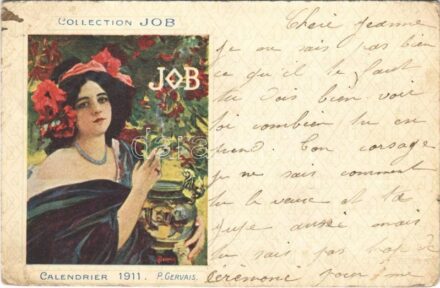 COLLECTION JOB
JOB
CALENDRIER 1911. P. GERVAIS.
Cheri Jeanne
Je ne sais pas bien
ce qu'il te faut
tu dois bien voir
toi combien tu en
Ton corsage
je ne sais comment
tu le veux et ta
jupe aussi mais
tu sais pas trop de
cérémonie pour me